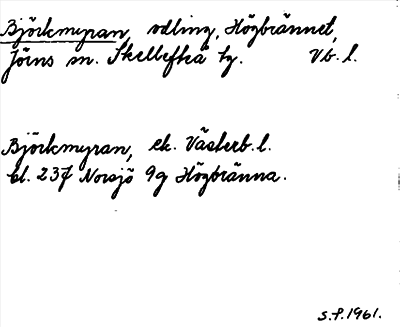 Björkmyran, odling, Högbrännet,
Jörns sn. Skellefteå tg. Vb. l.
Björkmyran, ek. Västerb. l.
bl. 237 Norsjö 9g Högbränna.
S.P. 1961.